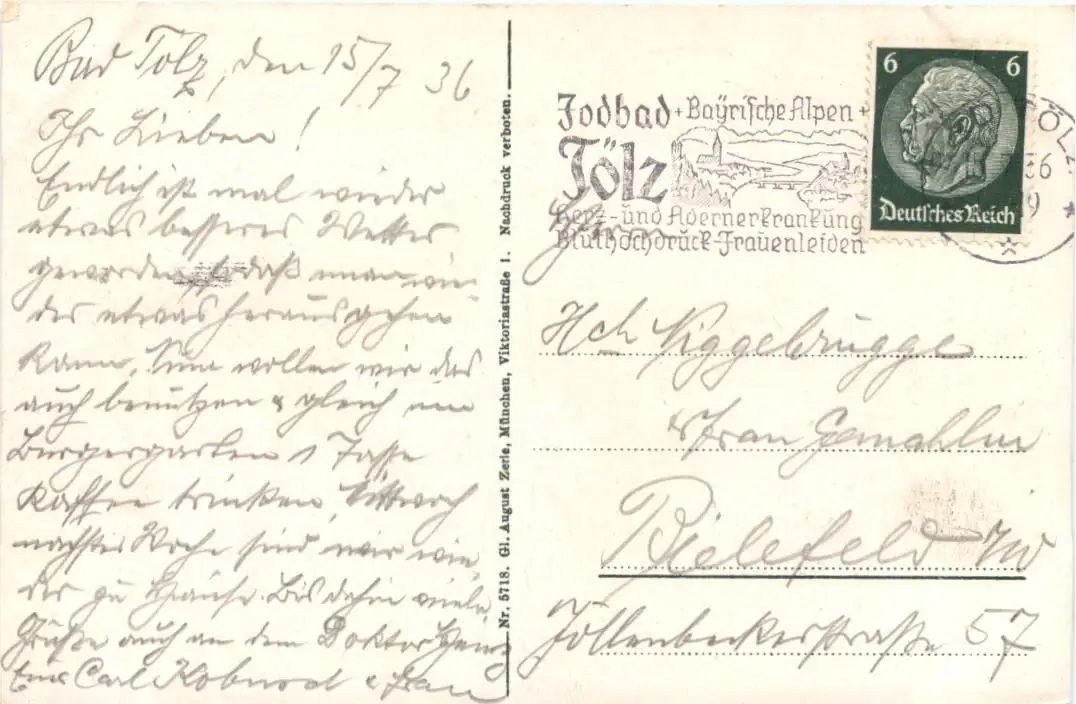 Bad Tölz, den 15/7 36
Ihr Lieben!
Endlich ist mal wieder
etwas besseres Wetter
geworden, so daß man wie-
der etwas herausgehen
kann. Nun wollen wir das
auch benützen & gleich im
Bürgergarten 1 Tasse
Kaffee trinken. Mittwoch
nächster Woche sind wir wie
der zu Hause. Bis dahin viele
Grüße auch an den Doktor
Eure Carl & Frau
Nr. 5718. Gl. August Zerle, München, Viktoriastraße 1. Nachdruck verboten.
Jodbad + Bayrische Alpen +
Tölz
Herz- und Adernerkrankung
Bluthochdruck-Frauenleiden
6 6
Deutsches Reich
TÖLZ
36
Herrn
Hch Niggebrügge
& Frau Gemahlin
Bielefeld i/W
Jöllenbeckerstraße 57